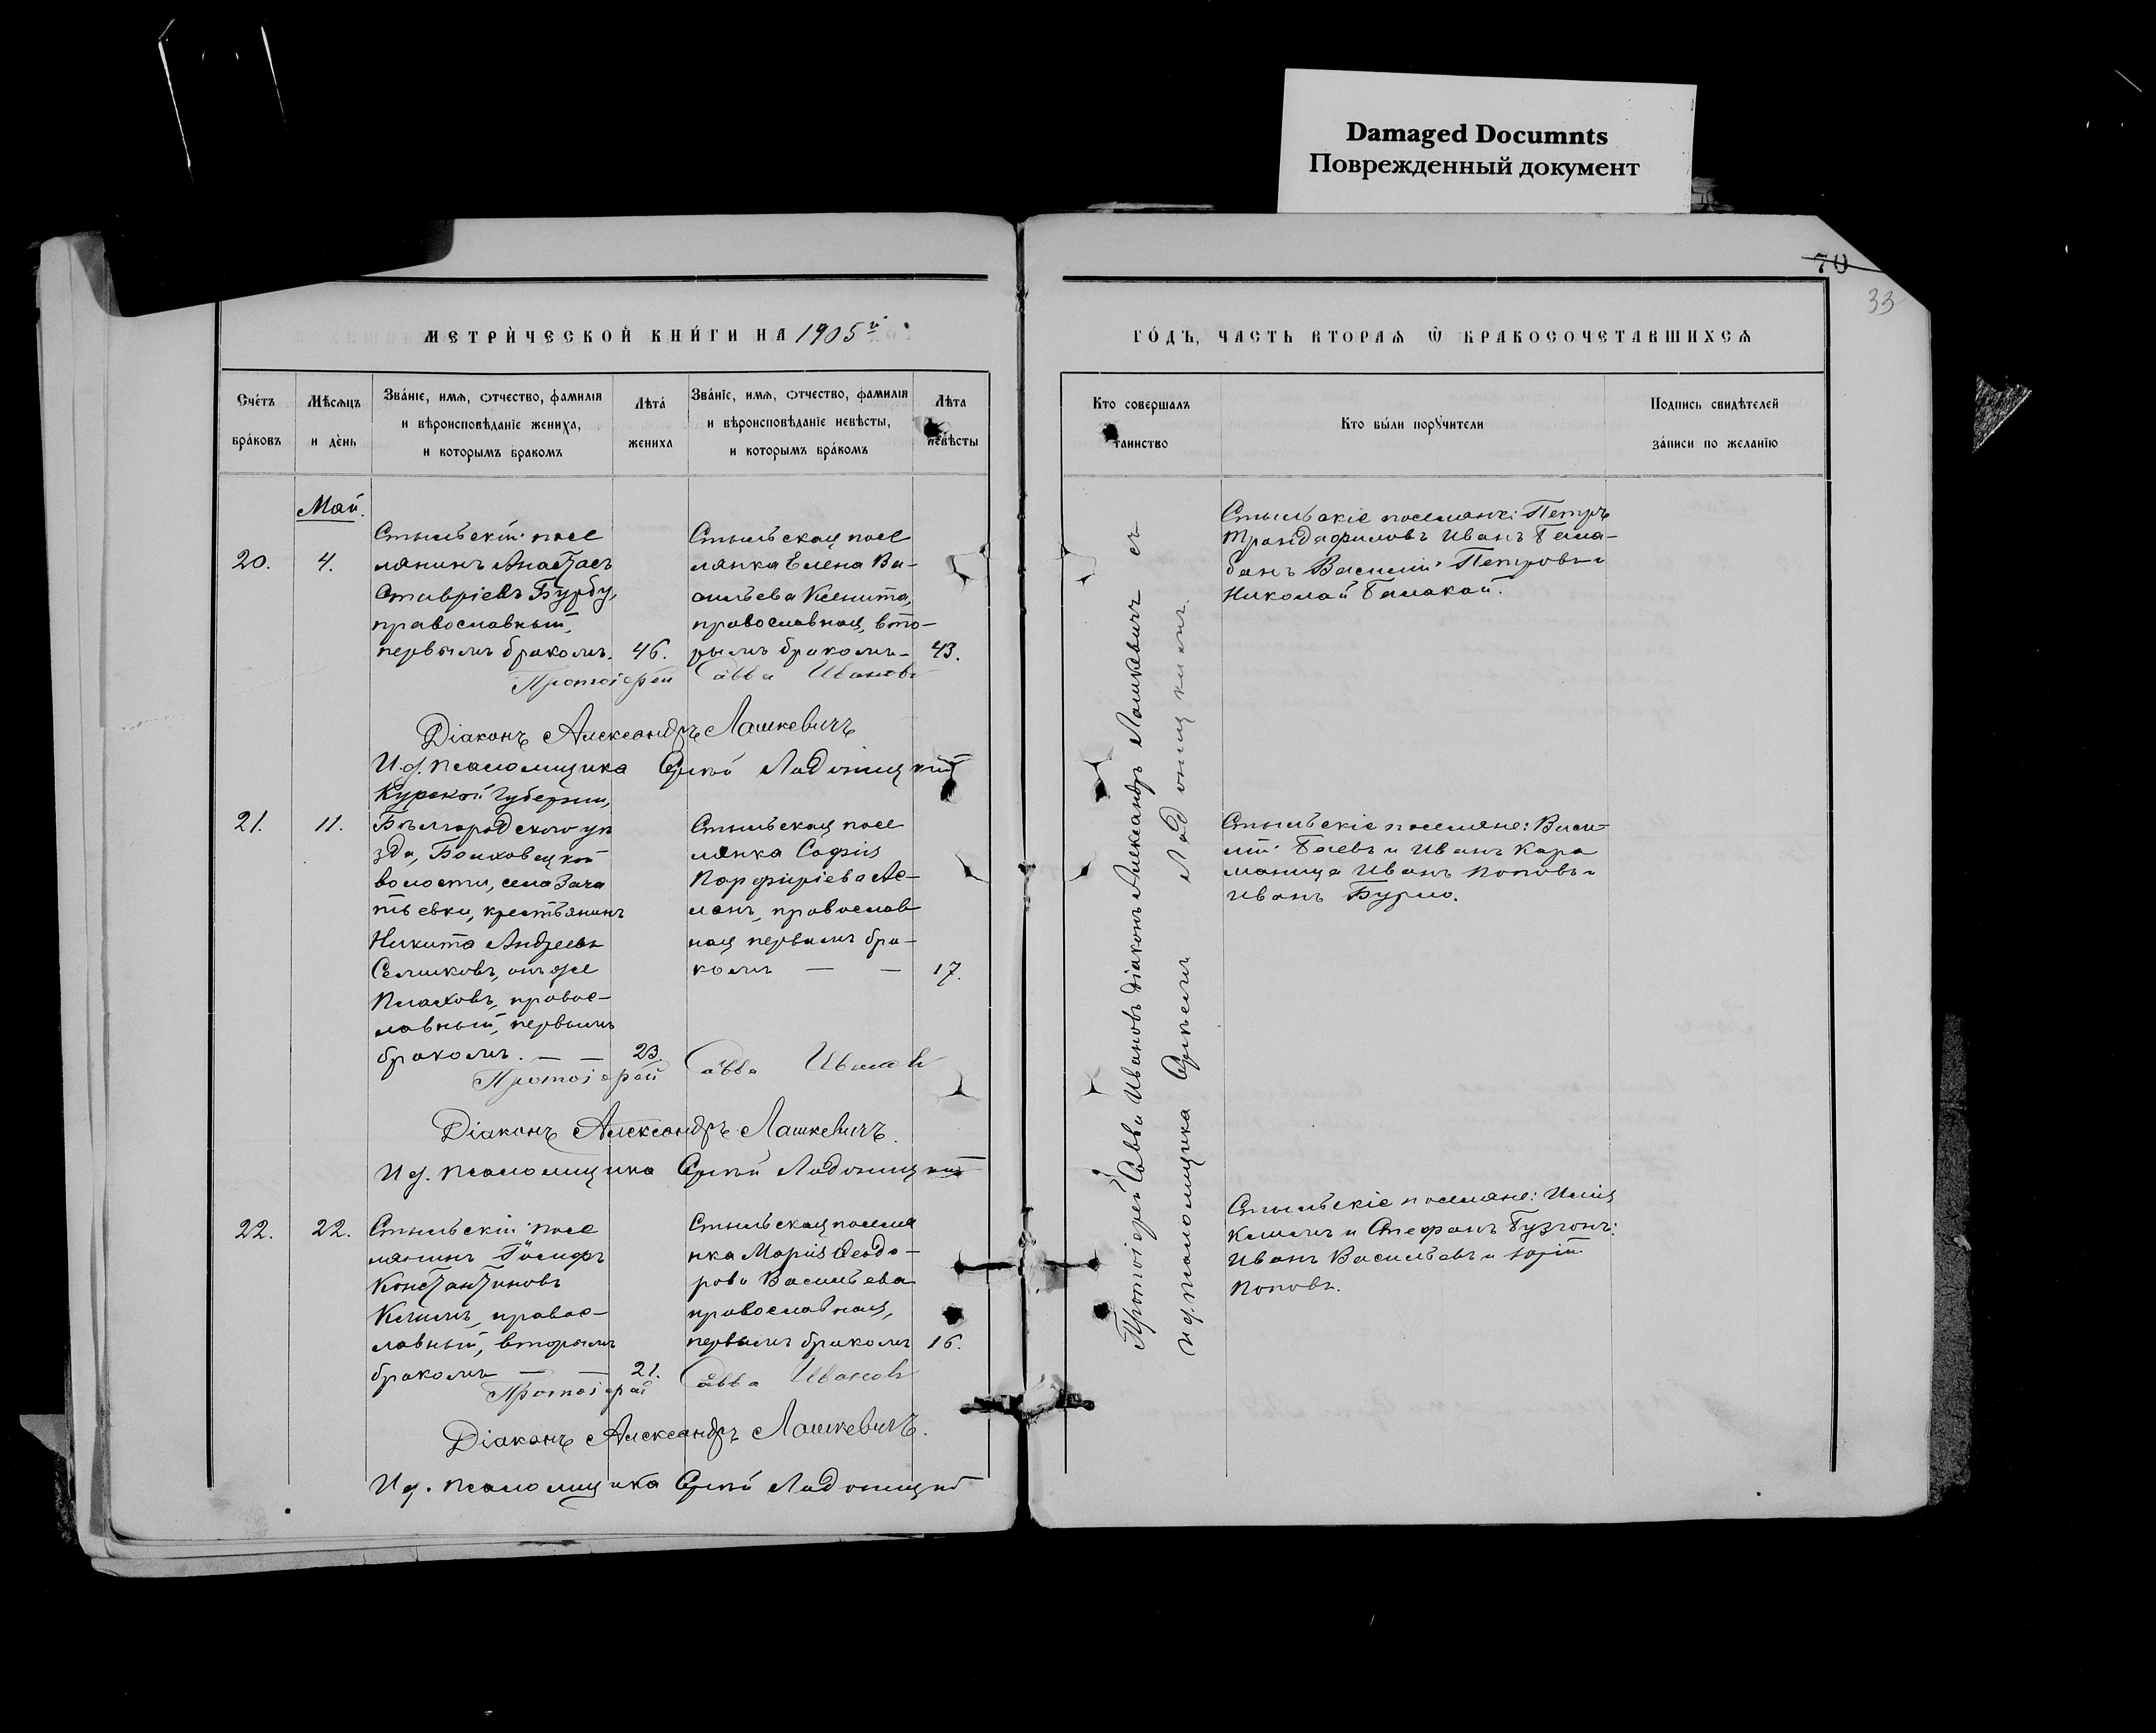 Damaged Documnts
Поврежденный документ
70
33
МЕТРИ́ЧЕСКОЙ КНИ́ГИ НА 1905й
ГО́ДЪ, ЧАСТЬ ВТОРАѦ Ѿ БРАКОСОЧЕТАВШИХСѦ
Сче́тъ бра́ковъ
Мѣсѧцъ и де́нь
Зва́нїе, имѧ, отчество, фамилїя
и вѣроисповѣданїе жениха,
и которымъ бракомъ
Лѣта́ жениха
Зва́нїе, имѧ, отчество, фамилїя
и вѣроисповѣданїе невѣсты,
и которымъ бра́комъ
Лѣта невѣсты
Кто совершалъ таинство
Кто бы́ли порꙋчители
Подпись свидѣтелей
за́писи по желанїю
Май.
20.
4.
Стыльскій посе
лянинъ Анастасъ
Ставріевъ Бурбу,
православный,
первымъ бракомъ.
46.
Стыльская посе
лянка Елена Ва-
сильева Ксенита,
православная, вто-
рымъ бракомъ-
43.
Протоіерей Савва Ивановъ
Діаконъ Александръ Лашкевичъ
И.д. псаломщика Сергѣй Ладоницкій
21.
11.
Курской губерніи,
Бѣлгородскаго уѣ
зда, Болховецкой
волости, села Зача
тьевки, крестьянинъ
Никита Андреевъ
Селшковъ, онъ же
Пласховъ, правос-
лавный, первымъ
бракомъ. — —
23.
Стыльская посе
лянка Софія
Порфиріева Ас-
ланъ, православ
ная первымъ бра-
комъ — —
17.
Протоіерей Савва Ивановъ
Діаконъ Александръ Лашкевичъ.
И д. псаломщика Сергѣй Ладоницкій
22.
22.
Стыльскій посе
лянинъ Іосифъ
Константиновъ
Кличъ, правос-
лавный, вторымъ
бракомъ — —
21.
Стыльская поселя
нка Марія Ѳеодо-
рова Васильева
православная,
первымъ бракомъ
16.
Протоіерей Савва Ивановъ
Діаконъ Александръ Лашкевичъ.
И д. псаломщика Сергѣй Ладоницкій
Протоіерей Савва Ивановъ діаконъ Александръ Лашкевичъ съ
и д. псаломщика Сергѣемъ Ладоницкимъ.
Стыльскіе поселяне: Петръ
Трандафиловъ Иванъ Бала-
банъ Василій Петровъ и
Николай Балакай.
Стыльскіе поселяне: Васи-
лій Баевъ и Иванъ Кара
маница Иванъ Поповъ и
Иванъ Бурло.
Стыльскіе поселяне: Илія
Кличъ и Стефанъ Бузгонъ:
Иванъ Васильевъ и Юрій
Поповъ.